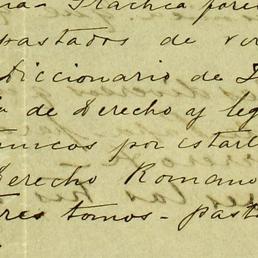 na - Practica foren
pastados de vir
Diccionario de D
ia de Derecho y leg
unicos por estarl
Derecho Romano
Tres tomos - pasta